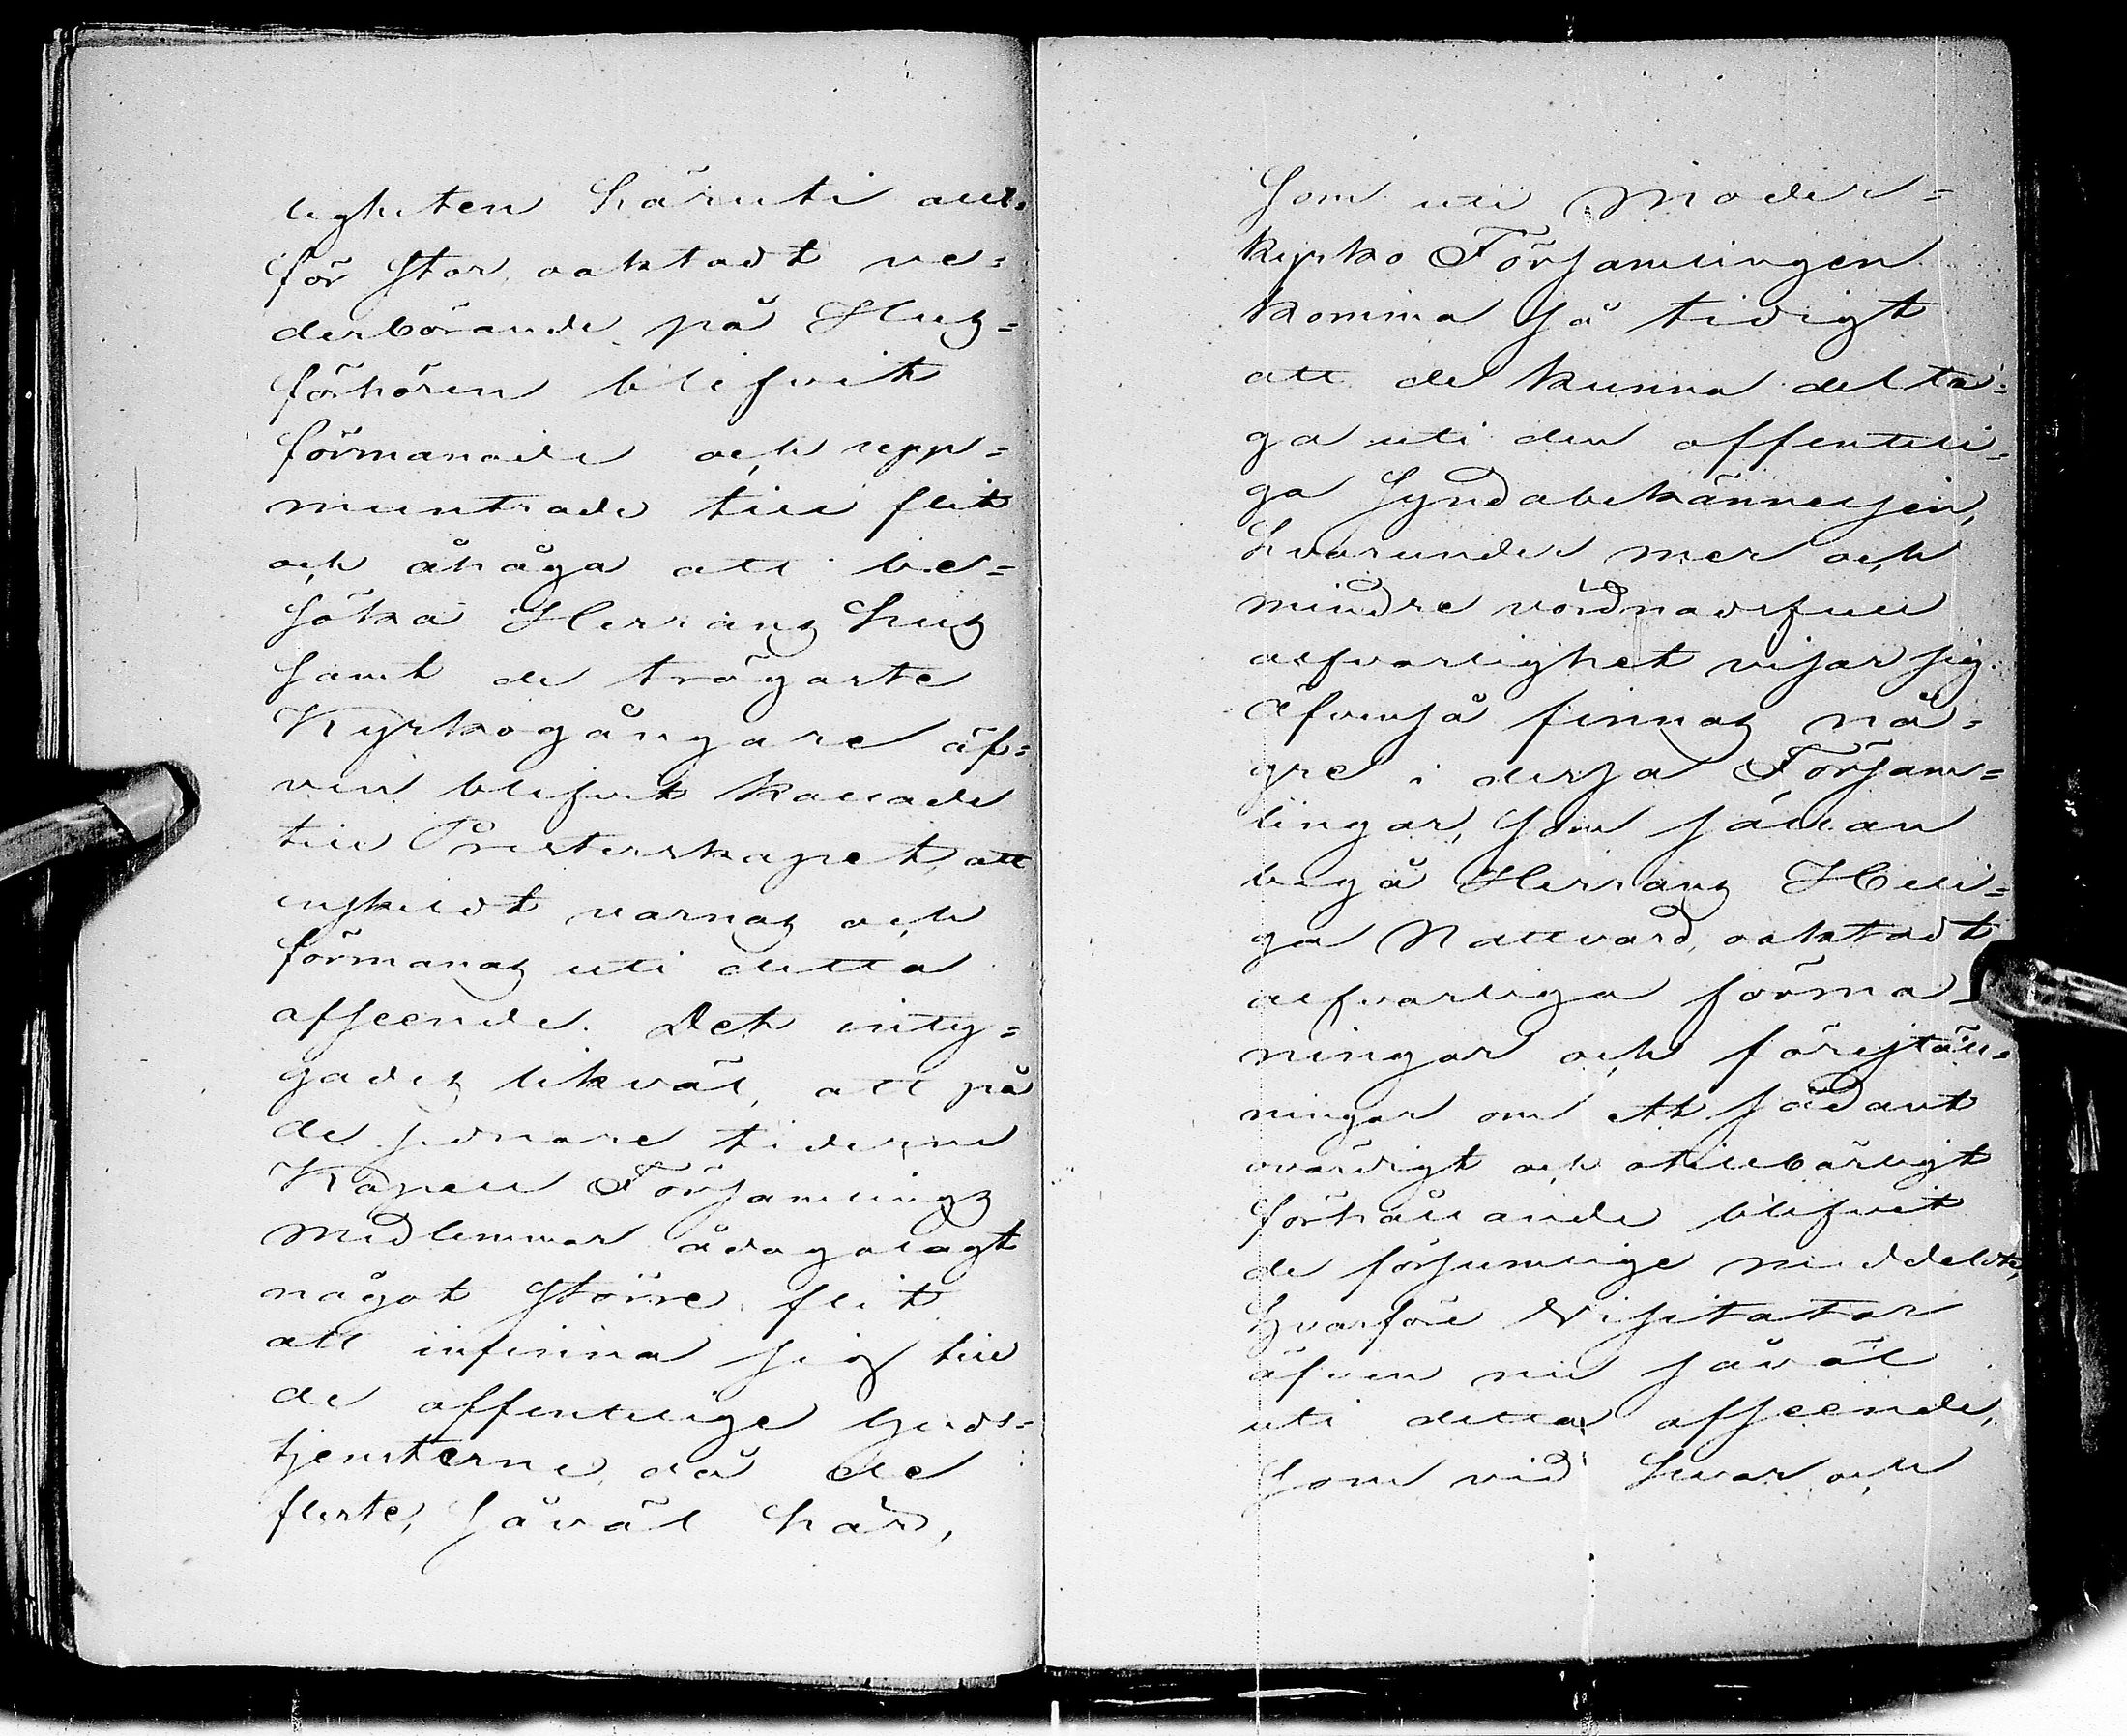 ligheten häruti allt
för stor, oaktadt ve=
derbörande på Hus=
förhören blifvit
förmanade och upp=
muntrade till flit
och åhåga att be=
söka Herrans hus
samt de trögaste
Kyrkogångare äf=
ven blifvit kallade
till Presterskapet, att
enskildt varnas och
förmanas uti detta
afseende. Det inty=
gades likväl, att på
de sednare tiderne
Kapell Församlings
medlemmar ådagalagt
något större flit
att infinna sig till
de offentlige Guds=
tjensterne, då de
fleste, såväl här,
som uti Moder=
kyrko Församlingen
komma så tidigt
att de kunna delta=
ga uti den offentli=
ga Syndabekännelsen,
hvarunder mer och
mindre vördnadsfull
alfvarlighet visar sig.
Äfvenså finnas nå=
gre i dessa Försam=
lingar, som sällan
begå Herrans Heli=
ga Nattvard, oaktadt
alfvarliga förma=
ningar och föreställ=
ningar om ett sådant
ovärdigt och otillbörligt
förhållande blifvit
de försumlige meddelte,
hvarföre Visitator
äfven nu såväl
uti detta afseende,
som vid hvar och